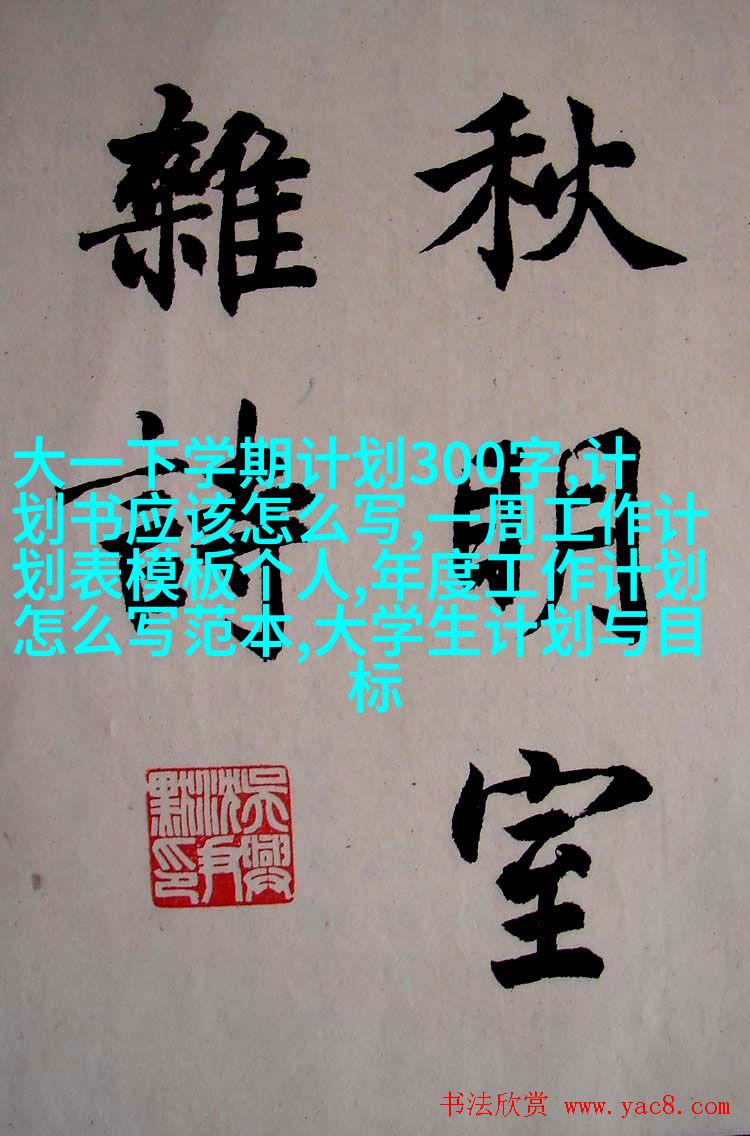 秋明室
雜詩
大一下学期计划300字,计
划书应该怎么写,一周工作计
划表模板个人,年度工作计划
怎么写范本,大学生计划与目
标
吳興沈尹默印
书法欣赏 www.yac8.com